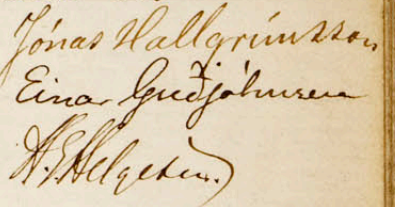 Jónas Hallgrímsson
Einar Guðjohnsen
H. E. Helgesen.